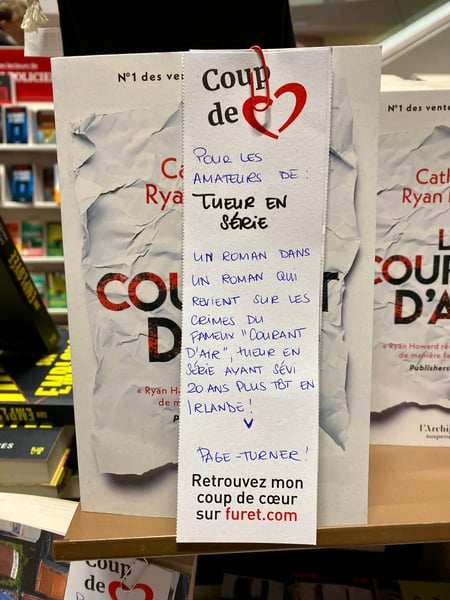 N°1 des ven
Coup
de
POUR LES
AMATEURS DE :
TUEUR EN
SÉRIE
UN ROMAN DANS
UN ROMAN QUI
REVIENT SUR LES
CRIMES DU
FAMEUX "COURANT
D'AIR", TUEUR EN
SÉRIE AYANT SÉVI
20 ANS PLUS TÔT EN
IRLANDE !
PAGE-TURNER !
Retrouvez mon
coup de cœur
sur furet.com
Ca
Rya
COU
T
D
« Ryan H
de m
P
N°1 des vente
Cath
Ryan
L
COUR
D'A
« Ryan Howard ré
de manière fa
Publishers
l'Archip
suspens
POLICIE
Coup
de